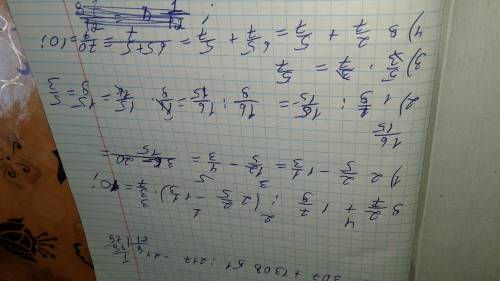 9 2/7 + 1 7/9 : (2 2/5 - 1 1/3) · 3/7 = 10!
1) 2 2/5 - 1 1/3 = 12/5 - 4/3 = 36-20/15 =
16/15
2) 1 7/9 : 16/15 = 16/9 : 16/15 = 16/9 · 15/16 = 15/9 = 5/3
3) 5/3 · 3/7 = 5/7
4) 9 2/7 + 5/7 = 65/7 + 5/7 = 65+5/7 = 70/7 = 10!